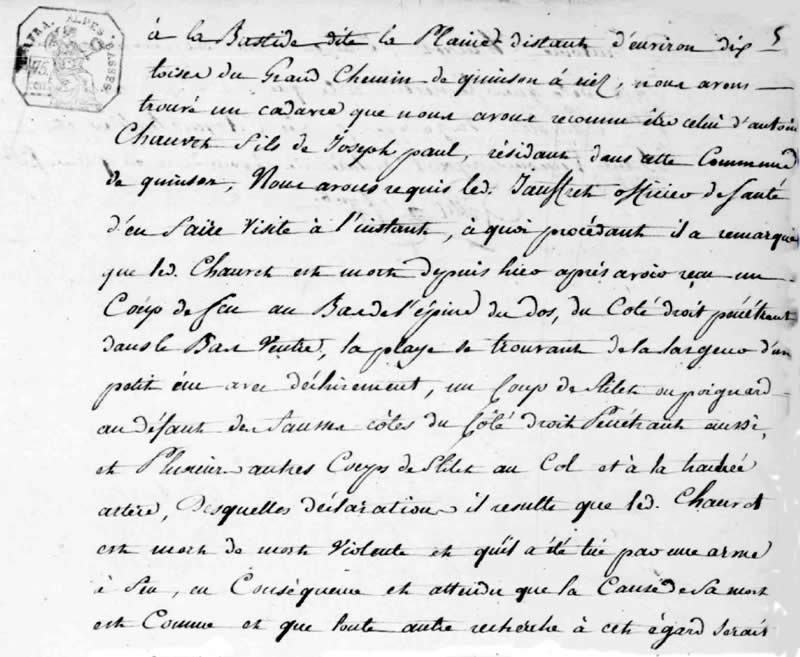 BASSES. ALPES
75
5
à la Bastide dite la Plaine distant d'environ dix
toises du Grand Chemin de quinson à riez, nous avons
trouvé un cadavre que nous avons reconnu être celui d'antoine
Chauvet fils de Joseph paul, résidant dans cette Commune
de quinson, Nous avons requis led. Jauffret officier de Santé
d'en faire Visite à l'instant, à quoi procédant il a remarqué
que led. Chauvet est mort depuis hier après avoir reçu un
Coup de feu au Bas de l'épine du dos, du Coté droit pénétrant
dans le Bas Ventre, la playe se trouvant de la largeur d'un
petit écu avec déchirement, un Coup de Stilet ou poignard
au défaut des fausses côtes du Côté droit Pénétrant aussi,
et Plusieurs autres Coups de Stilet au Col et à la trachée
artère, Desquelles déclarations il resulte que led. Chauvet
est mort de mort Violente et qu'il a été tué par une arme
à feu, en Conséquence et attendu que la Cause de Sa mort
est Connue et que toute autre recherche à cet égard serait